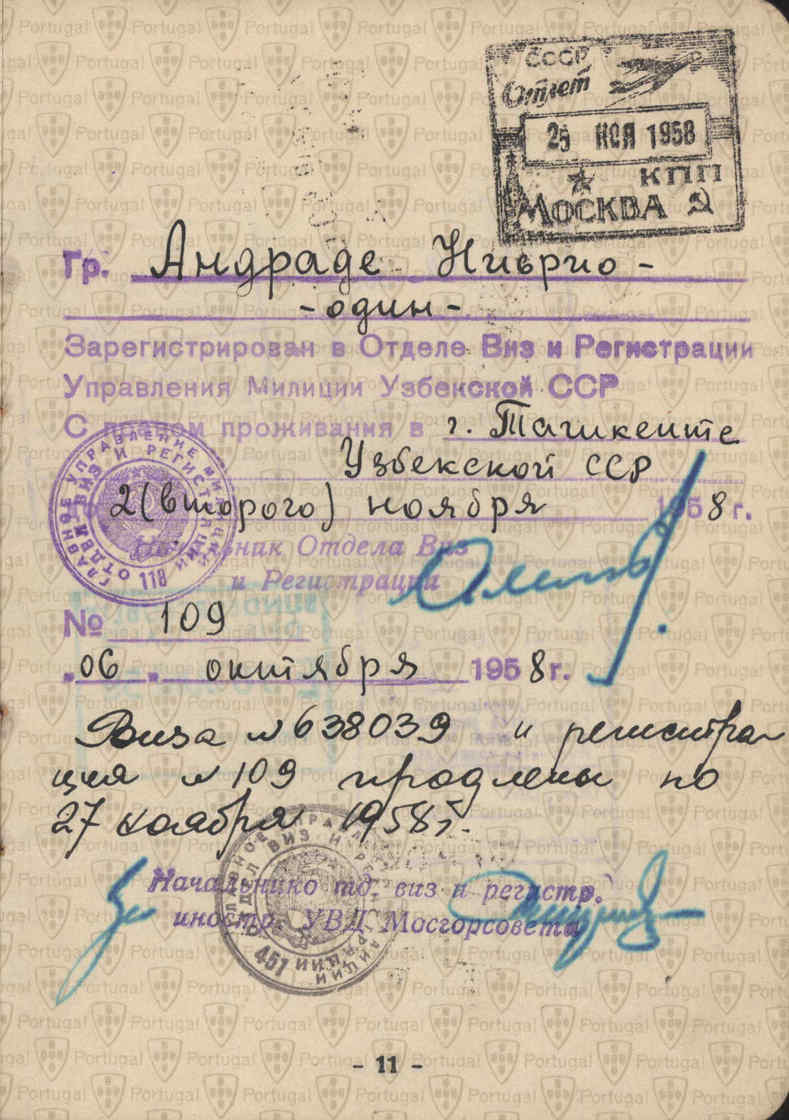 СССР
Отлет
25 НОЯ 1958
КПП
МОСКВА
Гр. Андраде
- один -
Зарегистрирован в Отделе Виз и Регистрации
Управления Милиции Узбекской ССР
С правом проживания в г. Ташкенте
Узбекской ССР
2 (второго) ноября 1958 г.
Начальник Отдела Виз
и Регистрации
ГЛАВНОЕ УПРАВЛЕНИЕ МИЛИЦИИ
ОТДЕЛ ВИЗ И РЕГИСТРАЦИИ
118
№ 109
"06" октября 1958 г.
Виза № 638039 и регистра
ция № 109 продлены по
27 ноября 1958 г.
Начальнико тд. виз и регистр.
иностр. УВД Мосгорсовета
451
- 11 -